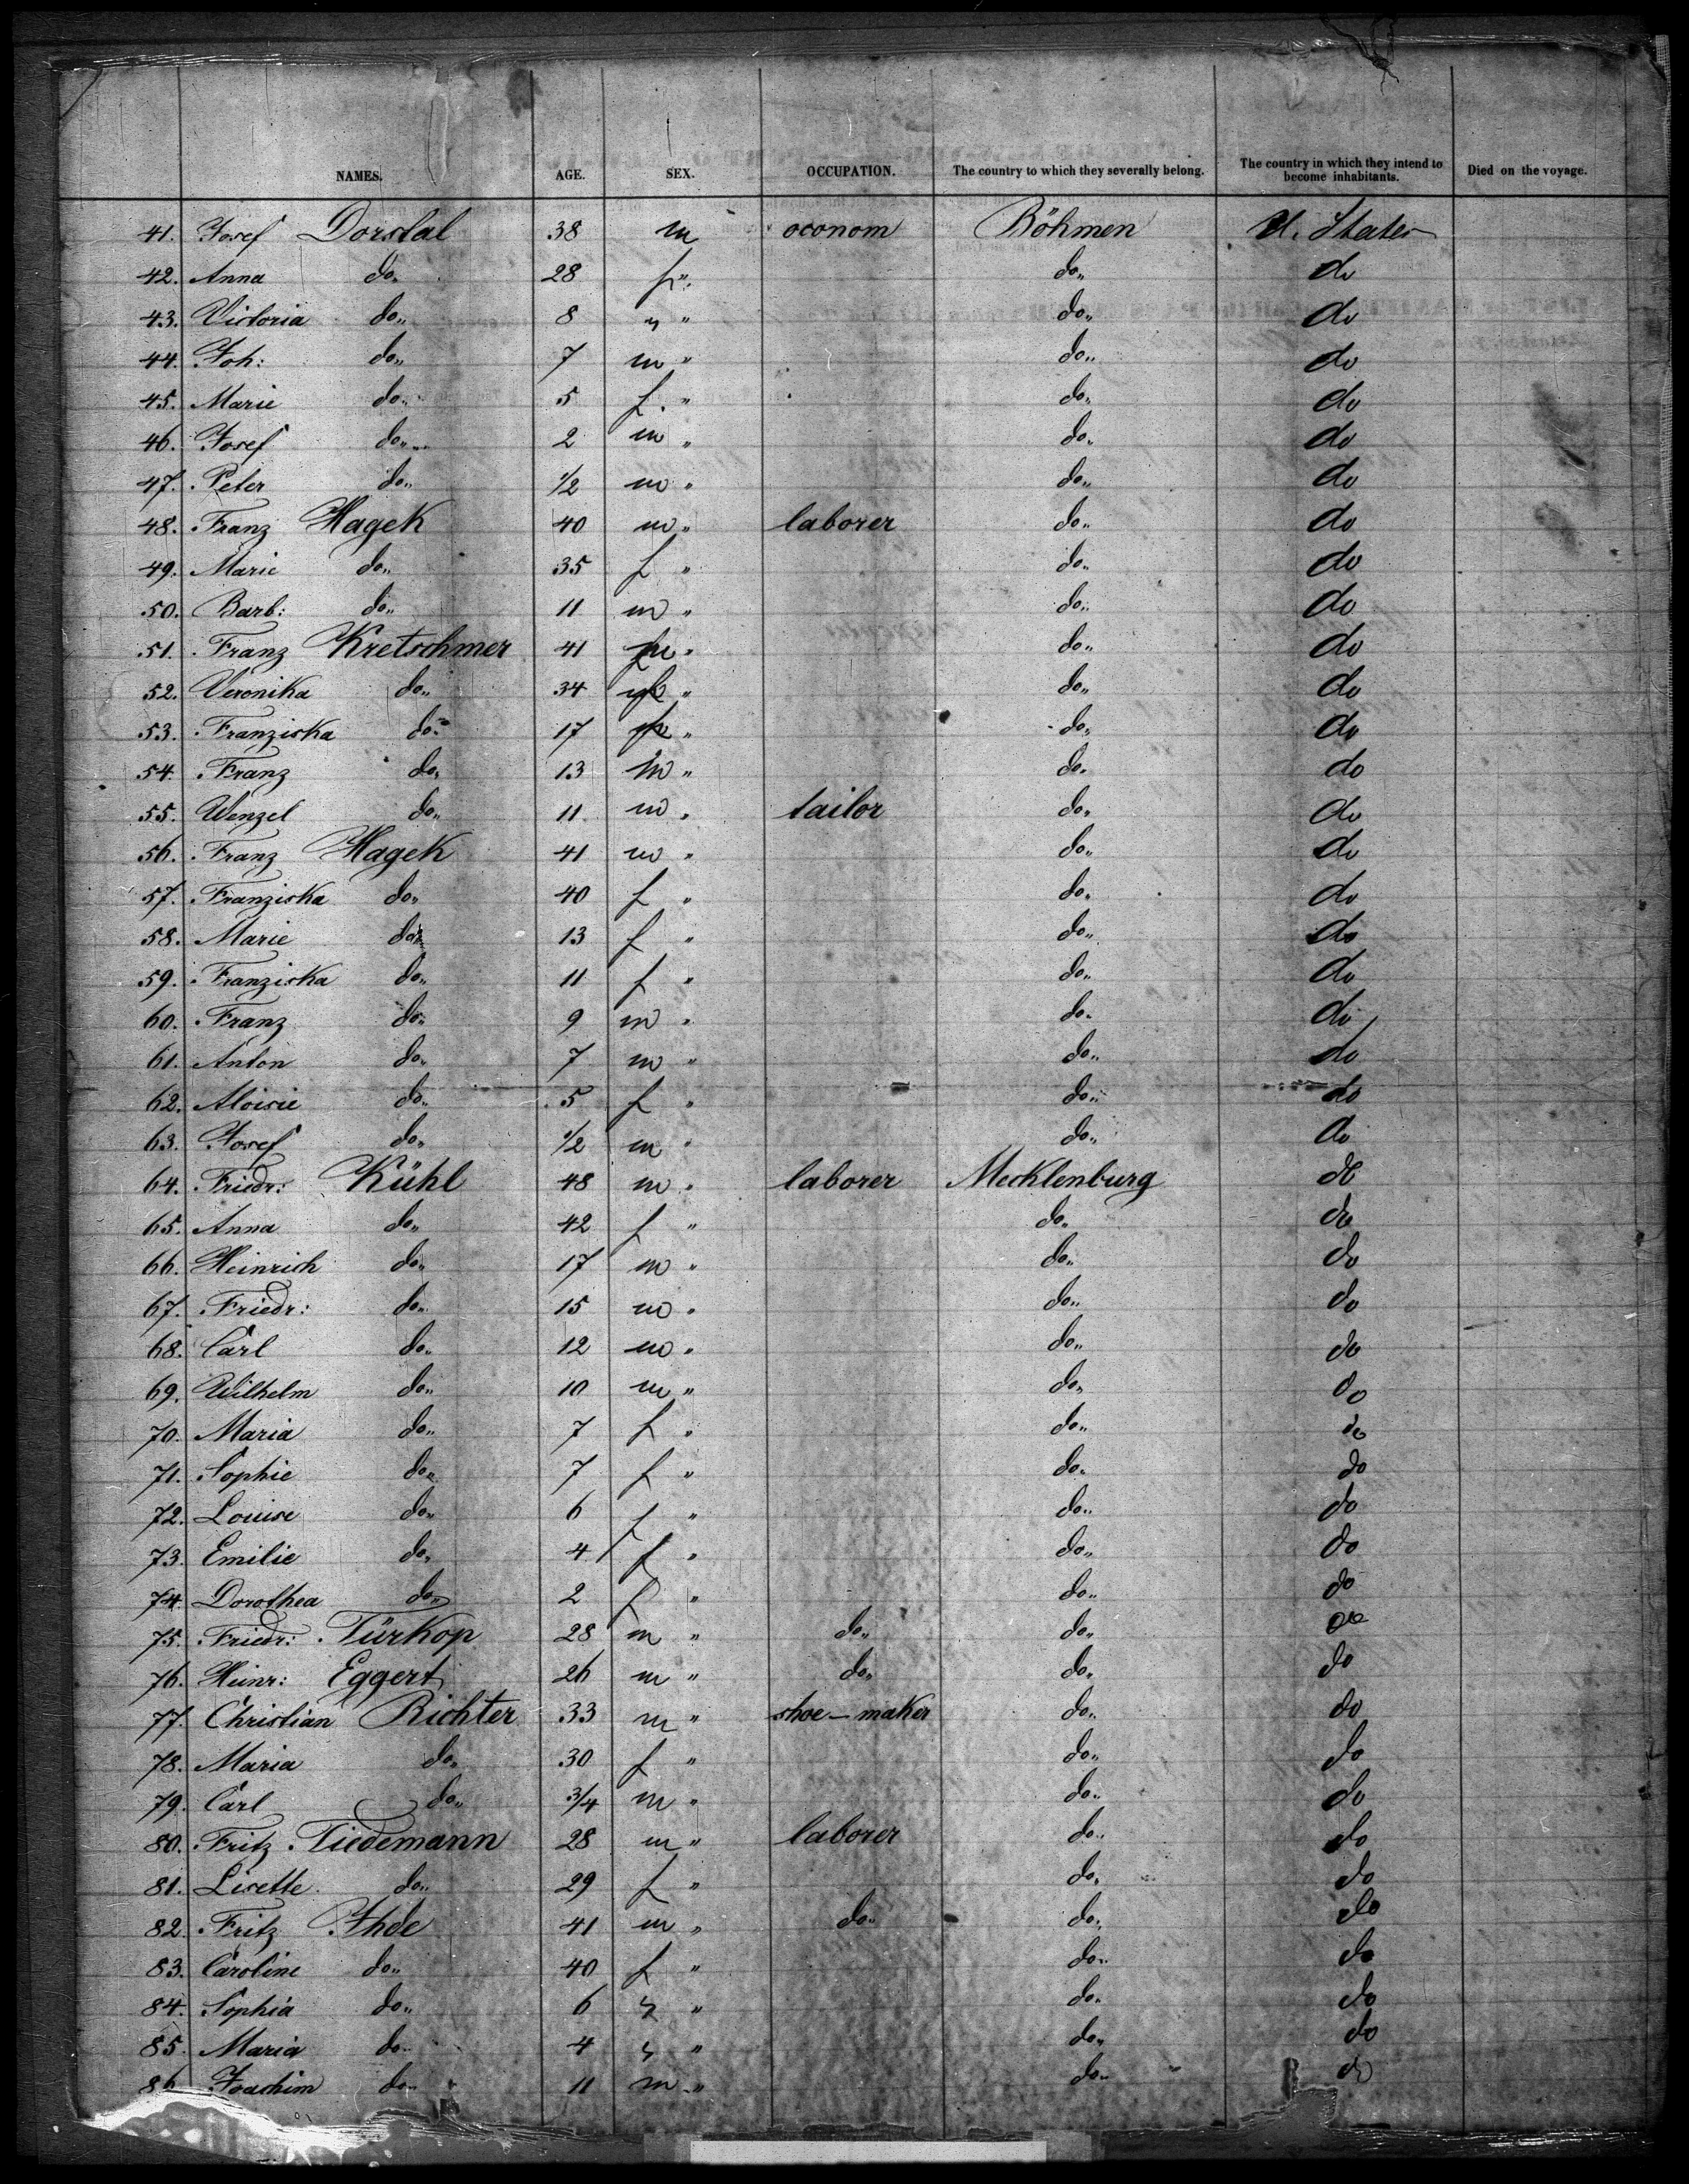 NAMES. AGE. SEX. OCCUPATION. The country to which they severally belong. The country in which they intend to become inhabitants. Died on the voyage.
41. Josef Dorstal 38 m oconom Böhmen U. States
42. Anna do. 28 f " do. do
43. Victoria do. 8 " " do. do
44. Joh: do. 7 m " do. do
45. Marie do. 5 f. " do. do
46. Josef do. 2 m " do. do
47. Peter do. 1/2 m " do. do
48. Franz Hagek 40 m " laborer do. do
49. Marie do. 35 f " do. do
50. Barb: do. 11 m " do. do
51. Franz Kretschmer 41 m " do. do
52. Veronika do. 34 f " do. do
53. Franziska do. 17 f " do. do
54. Franz do. 13 m " do. do
55. Wenzel do. 11 m " tailor do. do
56. Franz Hagek 41 m " do. do
57. Franziska do. 40 f " do. do
58. Marie do. 13 f " do. do
59. Franziska do. 11 f " do. do
60. Franz do. 9 m " do. do
61. Anton do. 7 m " do. do
62. Aloisie do. 5 f " do. do
63. Josef do. 1/2 m " do. do
64. Friedr: Kühl 48 m " laborer Mecklenburg do
65. Anna do. 42 f " do. do
66. Heinrich do. 17 m " do. do
67. Friedr: do. 15 m " do. do
68. Carl do. 12 m " do. do
69. Wilhelm do. 10 m " do. do
70. Maria do. 7 f " do. do
71. Sophie do. 7 f " do. do
72. Louise do. 6 f " do. do
73. Emilie do. 4 f " do. do
74. Dorothea do. 2 f " do. do
75. Friedr: Türkop 28 m " do. do. do
76. Heinr: Eggert 26 m " do. do. do
77. Christian Richter 33 m " shoe-maker do. do
78. Maria do. 30 f " do. do
79. Carl do. 3/4 m " do. do
80. Fritz Tiedemann 28 m " laborer do. do
81. Lisette do. 29 f " do. do
82. Fritz Ihde 41 m " do. do. do
83. Caroline do. 40 f " do. do
84. Sophia do. 6 " " do. do
85. Maria do. 4 " " do. do
86 Joachim do. 11 m " do. do